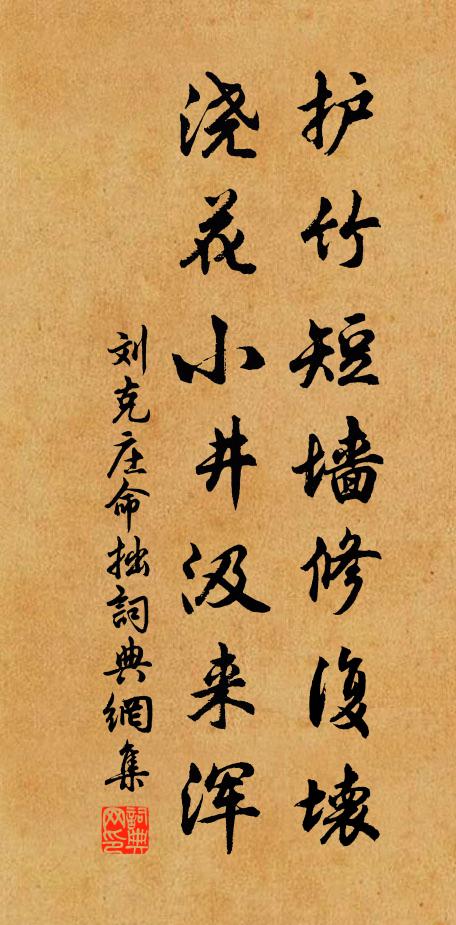 护竹短墙修复壊
浇花小井汲来浑
刘克庄命拙詞典網集
詞典網印